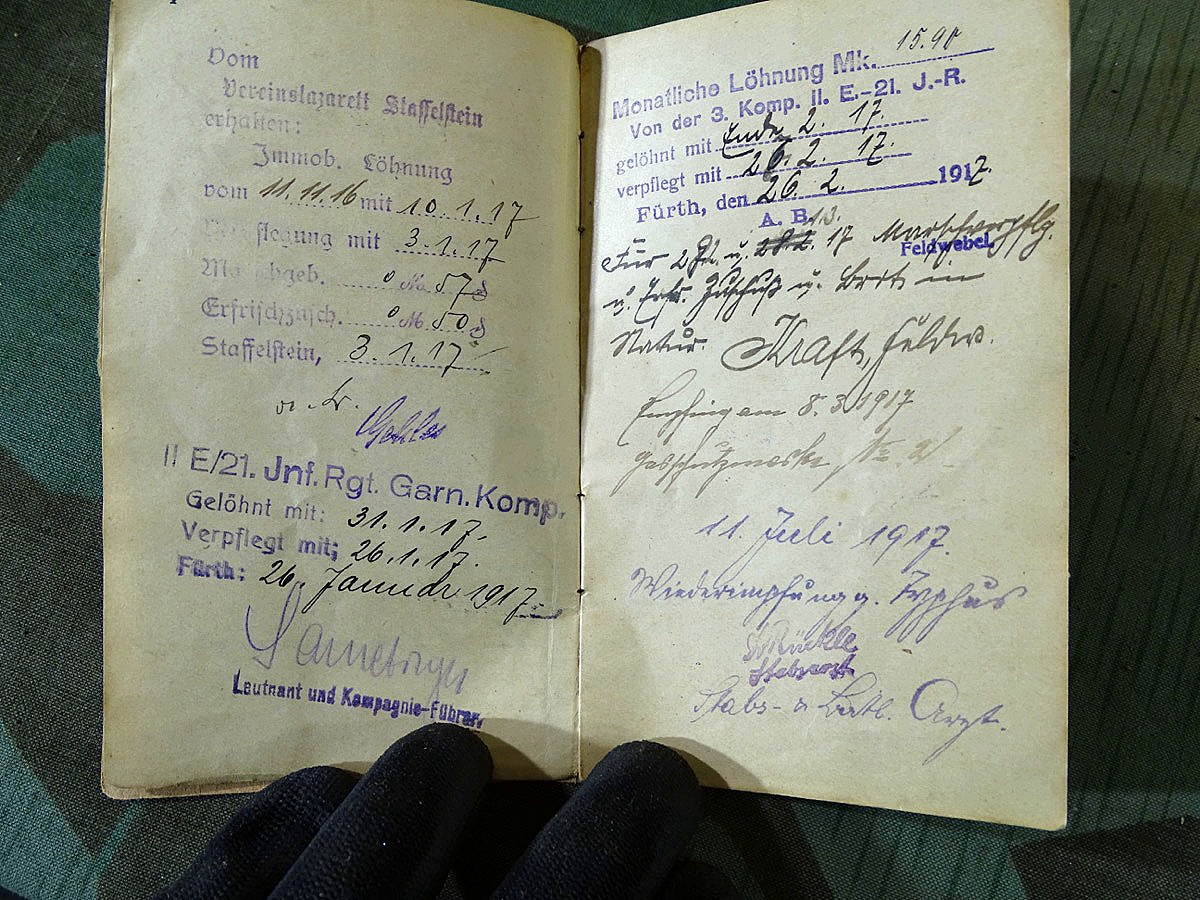 Vom
Vereinslazarett Staffelstein
erhalten:
Immob. Löhnung
vom 11.11.16 mit 10.1.17
Verpflegung mit 3.1.17
Marschgeb. 0 M 57 ₰
Erfrischzusch. 0 M 50 ₰
Staffelstein, 3.1.17
II E/21. Jnf. Rgt. Garn. Komp.
Gelöhnt mit: 31.1.17.
Verpflegt mit; 26.1.17.
Fürth: 26. Januar 1917
Leutnant und Kompagnie-Führer.
Monatliche Löhnung Mk. 15.90
Von der 3. Komp. II. E.-21. J.-R.
gelöhnt mit Ende 2. 17.
verpflegt mit 26. 2. 17.
Fürth, den 26. 2. 1917.
A. B.
Feldwebel.
Für 2 u. 1.3. 17 Marschverpflg.
u. Erfr. Zuschuß u. Brot in
Natur. Kraft, Feldw.
Empfing am 8.3.1917
Gasschutzmaske
11. Juli 1917.
Wiederimpfung g. Typhus
Dr Rückle
Stabsarzt
Stabs- u. Batl. Arzt.